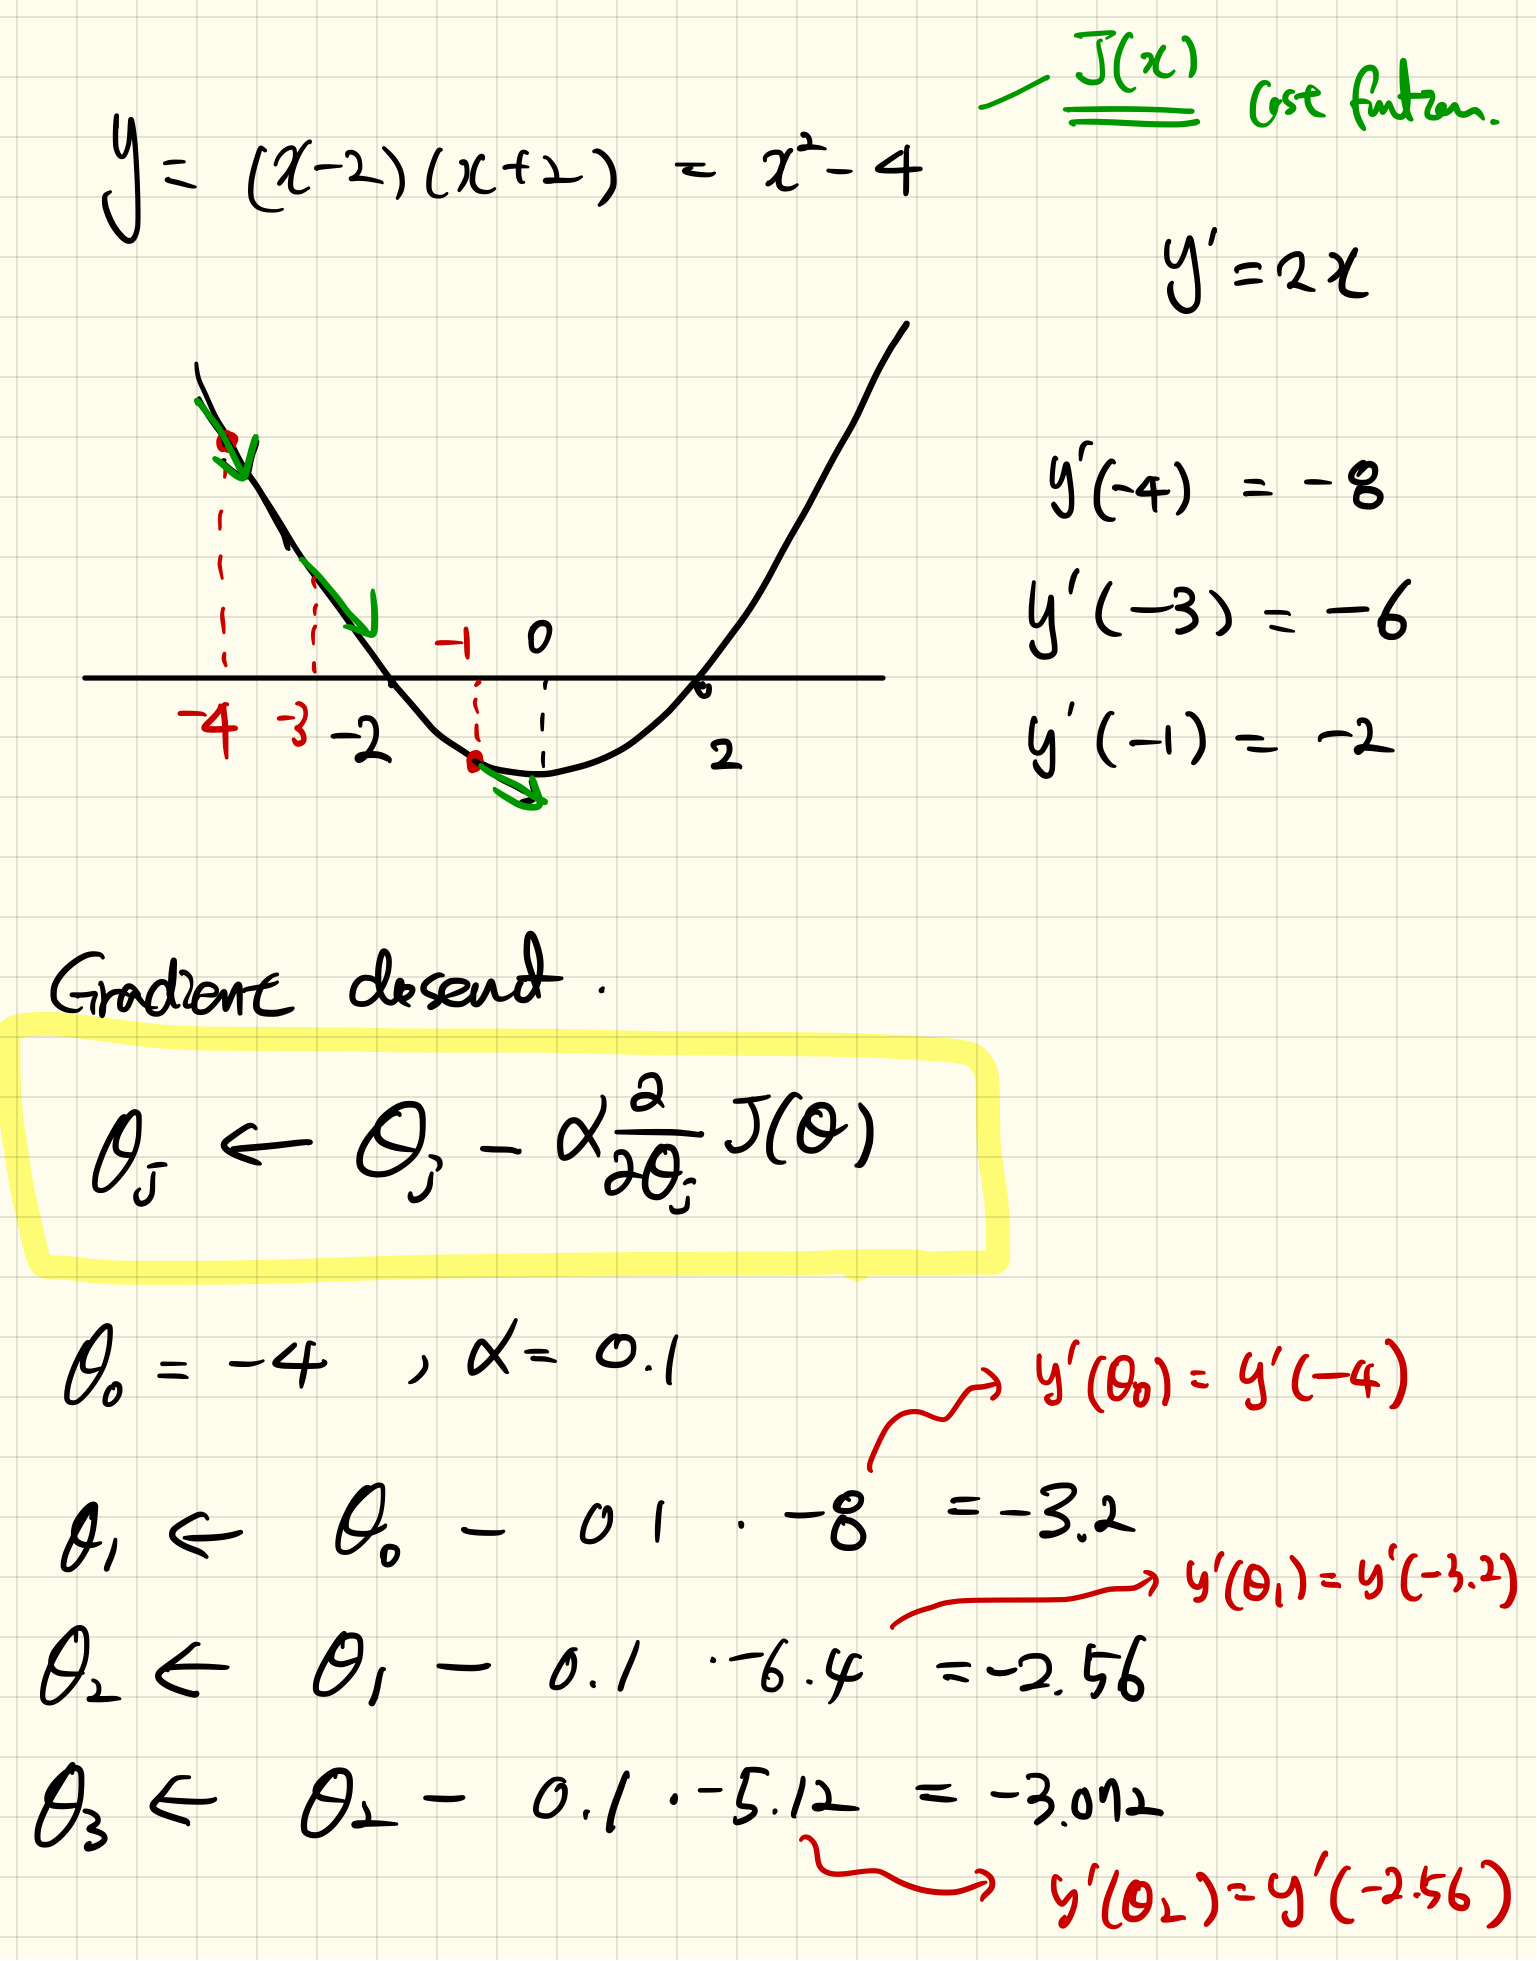 J(x) Cost funtion.
y = (x-2)(x+2) = x² - 4
y' = 2x
y'(-4) = -8
y'(-3) = -6
-1 0
-4 -3 -2 2
y'(-1) = -2
Gradient desend.
θj ← θj - α ∂/∂θj J(θ)
θ₀ = -4 , α = 0.1
y'(θ₀) = y'(-4)
θ₁ ← θ₀ - 0 1 · -8 = -3.2
y'(θ₁) = y'(-3.2)
θ₂ ← θ₁ - 0.1 · -6.4 = -2.56
θ₃ ← θ₂ - 0.1 · -5.12 = -3.072
y'(θ₂) = y'(-2.56)